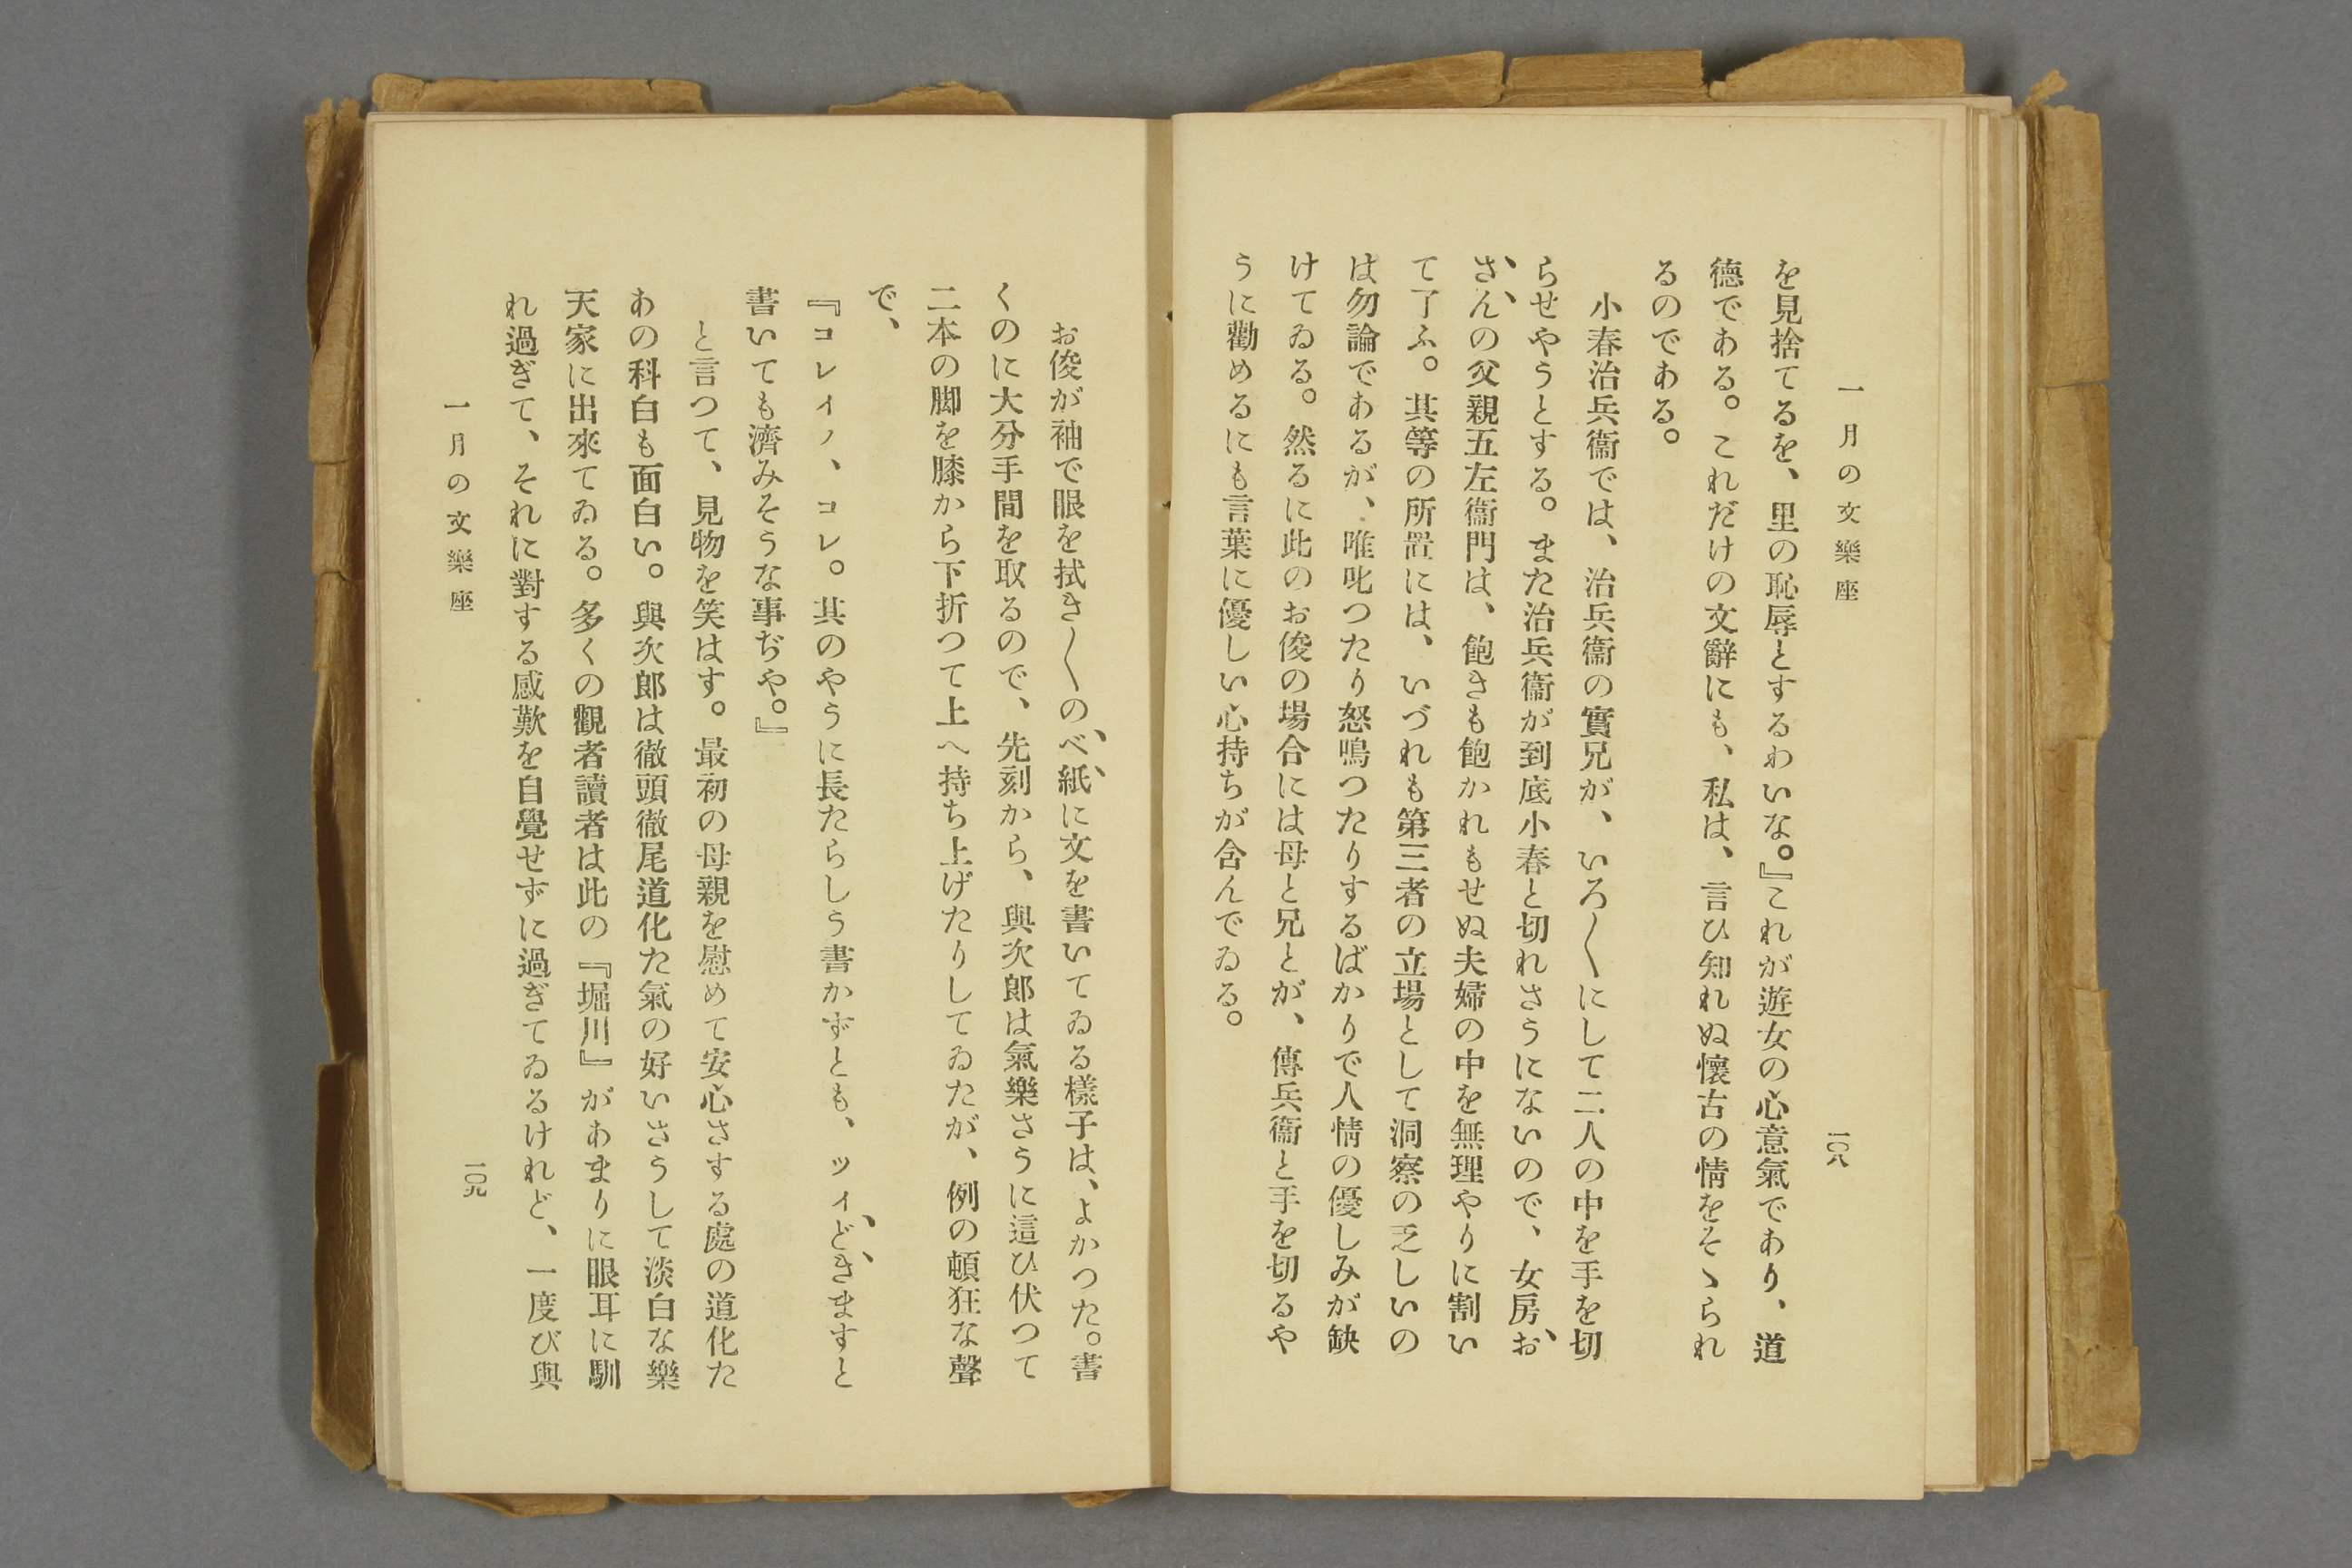 一月の文樂座
一〇八
を見捨てるを、里の恥辱とするわいな。』これが遊女の心意氣であり、道
德である。これだけの文辭にも、私は、言ひ知れぬ懷古の情をそゝられ
るのである。
小春治兵衞では、治兵衞の實兄が、いろ〳〵にして二人の中を手を切
らせやうとする。また治兵衞が到底小春と切れさうにないので、女房お
さんの父親五左衞門は、飽きも飽かれもせぬ夫婦の中を無理やりに割い
て了ふ。其等の所置には、いづれも第三者の立場として洞察の乏しいの
は勿論であるが、唯叱つたり怒鳴つたりするばかりで人情の優しみが缺
けてゐる。然るに此のお俊の場合には母と兄とが、傳兵衞と手を切るや
うに勸めるにも言葉に優しい心持ちが含んでゐる。
お俊が袖で眼を拭き〳〵のべ紙に文を書いてゐる樣子は、よかつた。書
くのに大分手間を取るので、先刻から、與次郎は氣樂さうに這ひ伏つて
二本の脚を膝から下折つて上へ持ち上げたりしてゐたが、例の頓狂な聲
で、
『コレイノ、コレ。其のやうに長たらしう書かずとも、ツイどきますと
書いても濟みそうな事ぢや。』
と言つて、見物を笑はす。最初の母親を慰めて安心さする處の道化た
あの科白も面白い。與次郎は徹頭徹尾道化た氣の好いさうして淡白な樂
天家に出來てゐる。多くの觀者讀者は此の『堀川』があまりに眼耳に馴
れ過ぎて、それに對する感歎を自覺せずに過ぎてゐるけれど、一度び與
一月の文樂座
一〇九